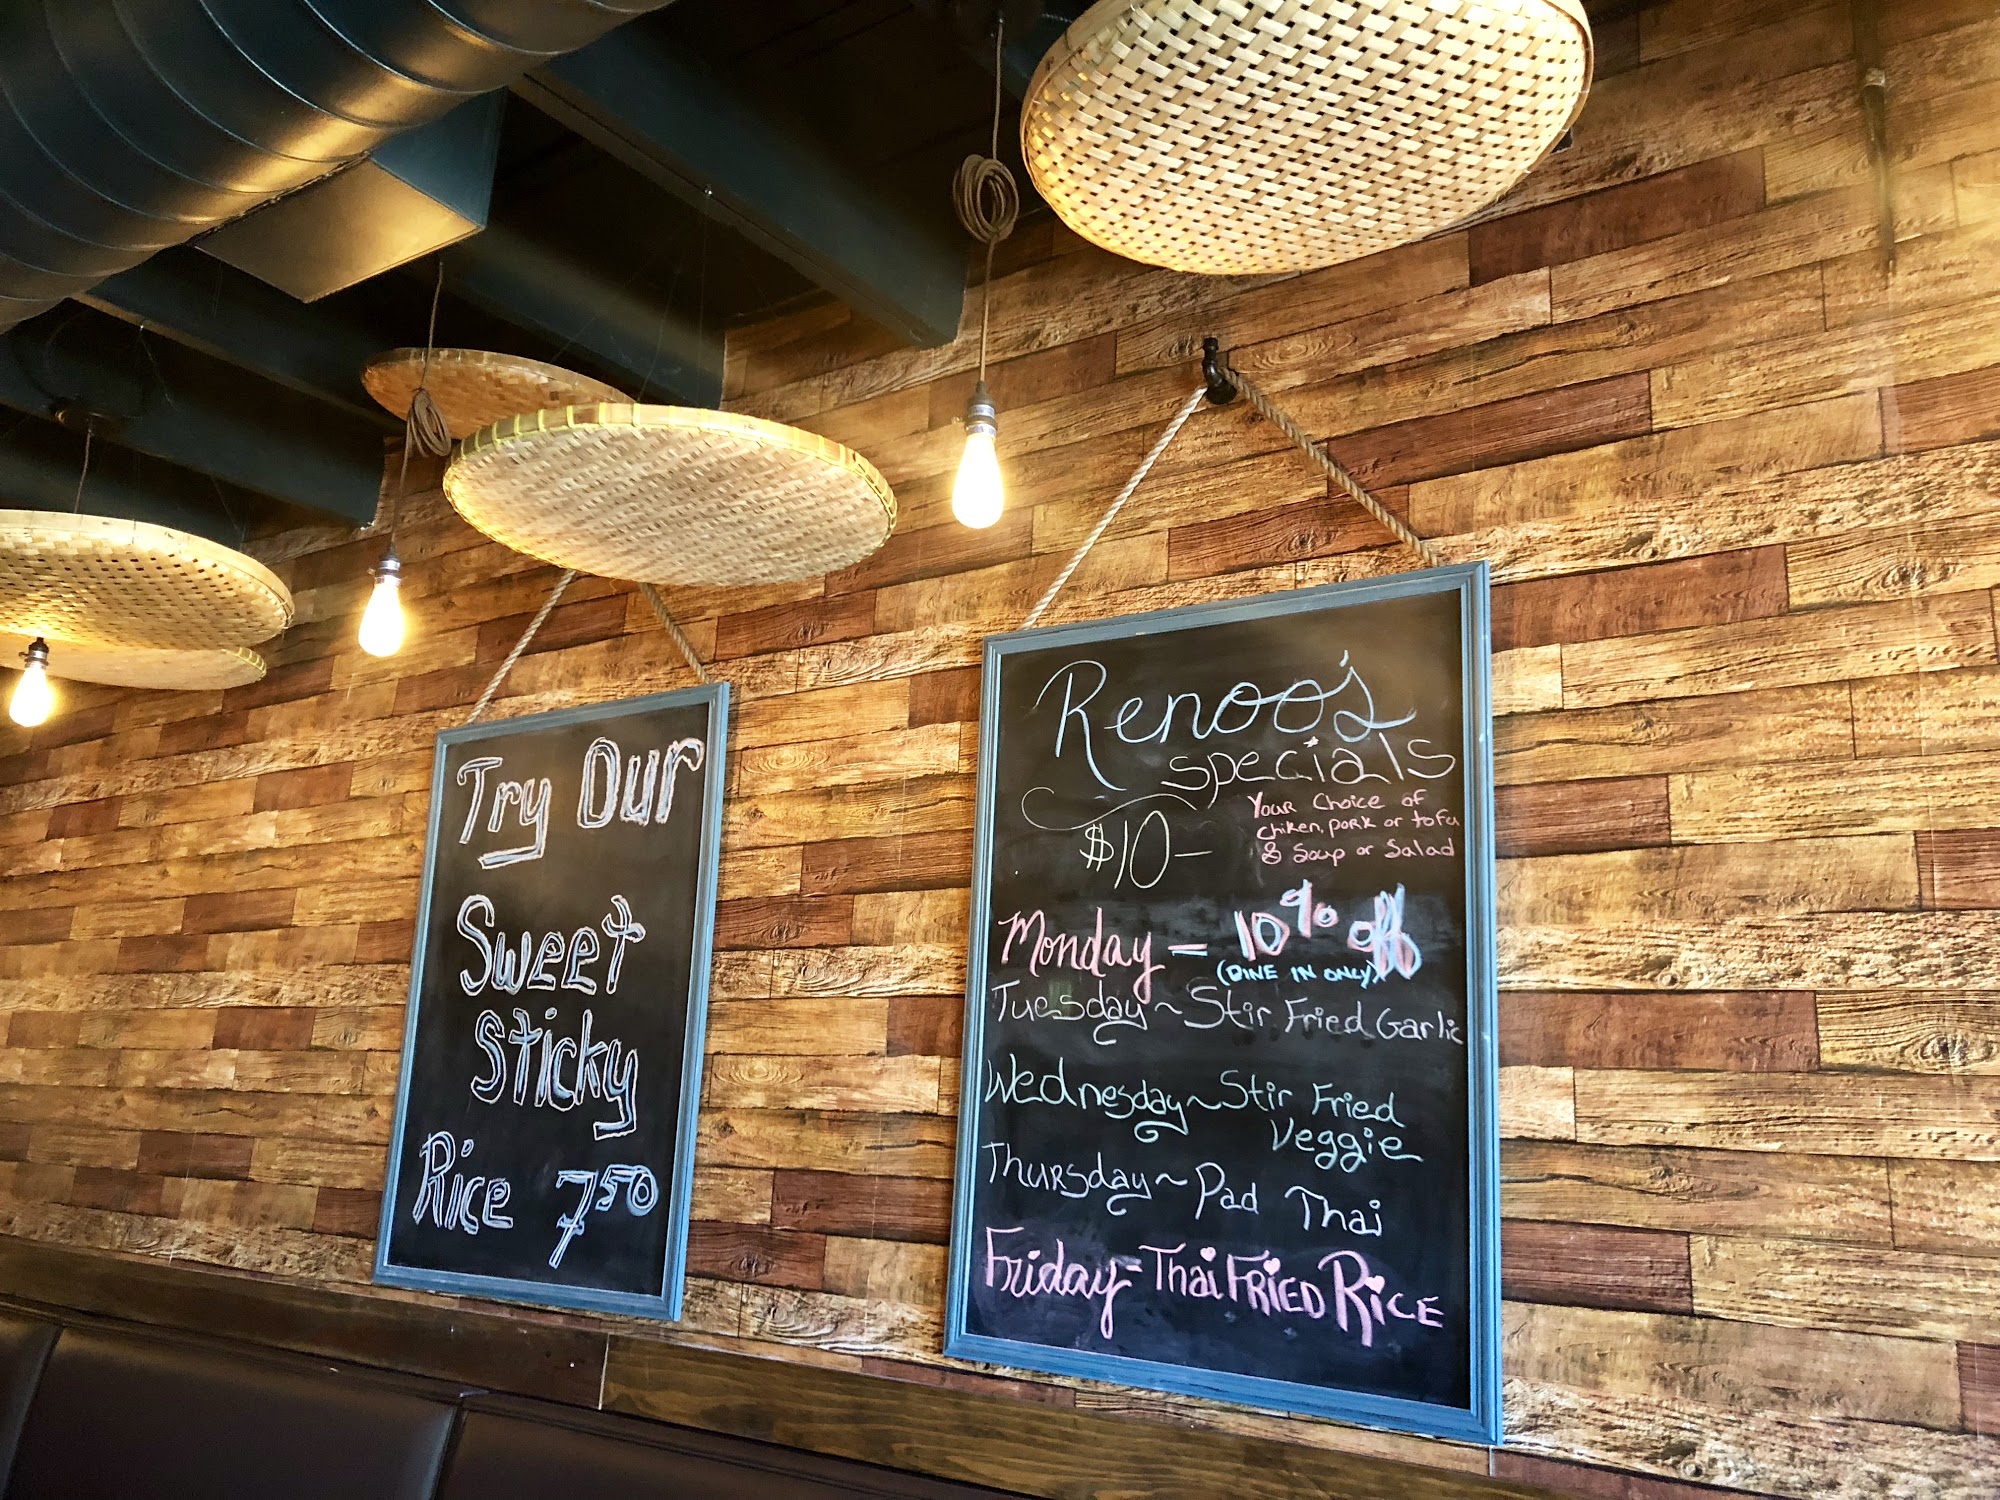 Try Our
Sweet
Sticky
Rice 7⁵⁰
Renoo's
Specials
$10—
Your Choice of
Chiken, pork or tofu
& Soup or Salad
Monday = 10% off
(DINE IN ONLY)
Tuesday ~ Stir Fried Garlic
Wednesday ~ Stir Fried
Veggie
Thursday ~ Pad Thai
Friday = Thai FRiED RiCE